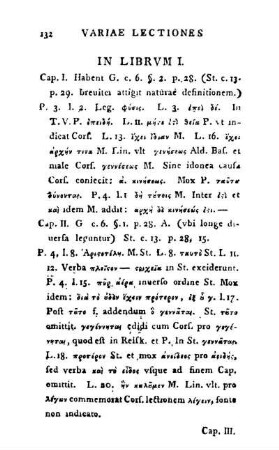 132 VARIAE LECTIONES
IN LIBRVM I.
Cap. I. Habent G. c. 6. §. 2. p. 28. (St. c. 13.
p. 29. breuiter attigit naturae definitionem.)
P. 3. l. 2. Leg. φύσις. L. 3. ἐπεὶ δέ. In
T. V. P. ἐπειδή. L. 11. μήτε ἐςὶ θεία P. vt in
dicat Corſ. L. 13. ἔχει ἰδίαν M. L. 16. ἔχει
ἀρχήν τινα M. Lin. vlt γενήσεως Ald. Baſ. et
male Corſ. γεννέσεως M. Sine idonea cauſa
Corſ. coniecit: α. κινήσεως. Mox P. ταῦτα
δύνανται. P. 4. l.1 δὴ τόποις M. Inter ἐςὶ et
καὶ idem M. addit: ἀρχὴ δὲ κινήσεώς ἐςι. —
Cap. II. G c. 6. §. 1. p. 28. A. (vbi longe di-
uerſa leguntur) St. c. 13. p. 28, 15.
P. 4, l. 8. Ἀριςοτέλη. M. St. L. 8. ταυτὸ St. L. 11.
12. Verba πλεῖςον — ςοιχεῖα in St. exciderunt.
P. 4. l. 15. πῦρ, ἀέρα, inuerſo ordine St. Mox
idem: διὰ τὸ οὐδὲν ἔχειν πρότερον, ἐξ οὗ γ. l. 17.
Poſt τοῦτο ſ. addendum ὃ γεννᾶται. St. τοῦτο
omittit. γεγέννηται, edidi cum Corſ. pro γεγέ-
νηται, quod eſt in Reiſk. et P. In St. γεννᾶται.
L. 18. προτέρον St. et mox ἀνείδεος pro ἀειδής,
ſed verba καὶ τὸ εἶδος vſque ad finem Cap.
omittit. L. 20. ἣν καλοῦμεν M. Lin. vlt. pro
λέγων commemorat Corſ. lectionem λέγειν, fonte
non indicato.
Cap. III.